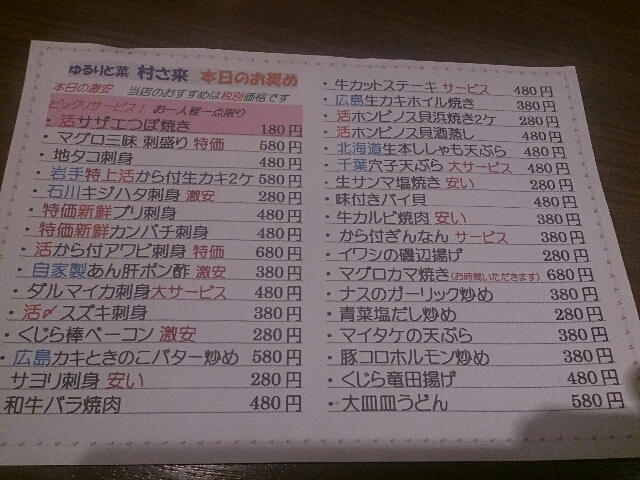 ゆるりと菜 村さ来 本日のお奨め
本日の激安 当店のおすすめは税別価格です
ビックリサービス！ お一人様一点限り
・活サザエつぼ焼き 180円
・マグロ三昧 刺盛り 特価 580円
・地タコ刺身 480円
・岩手特上活から付生カキ2ケ 580円
・石川キジハタ刺身 激安 280円
・特価新鮮ブリ刺身 480円
・特価新鮮カンパチ刺身 480円
・活から付アワビ刺身 特価 680円
・自家製あん肝ポン酢 激安 380円
・ダルマイカ刺身大サービス 480円
・活〆スズキ刺身 380円
・くじら棒ベーコン 激安 280円
・広島カキときのこバター炒め 580円
サヨリ刺身 安い 280円
和牛バラ焼肉 480円
・牛カットステーキ サービス 480円
・広島生カキホイル焼き 380円
・活ホンビノス貝浜焼き2ケ 280円
・活ホンビノス貝酒蒸し 480円
・北海道生本ししゃも天ぷら 480円
・千葉穴子天ぷら 大サービス 480円
・生サンマ塩焼き 安い 280円
・味付きバイ貝 480円
・牛カルビ焼肉 安い 380円
・から付ぎんなん サービス 380円
・イワシの磯辺揚げ 280円
・マグロカマ焼き(お時間いただきます) 680円
・ナスのガーリック炒め 380円
・青菜塩だし炒め 280円
・マイタケの天ぷら 380円
・豚コロホルモン炒め 380円
・くじら竜田揚げ 480円
・大皿皿うどん 580円